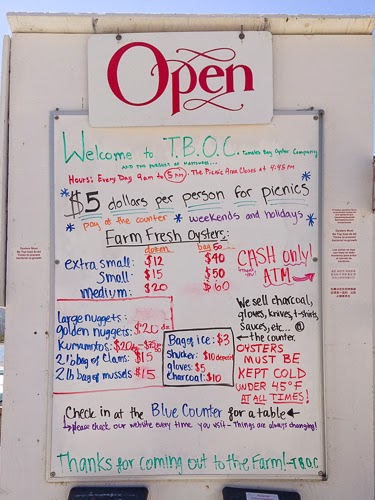 Open
Welcome to T.B.O.C. Tomales Bay Oyster Company
AND THE PURSUIT OF HAPPINESS...
Hours: Every Day 9am to 5PM. The Picnic Area Closes at 4:45 PM
$5 dollars per person for picnics
pay at the counter * weekends and holidays *
Farm Fresh Oysters:
dozen bag 50
extra small: $12 $40
small: $15 $50
medium: $20 $60
CASH only!
ATM
large nuggets:
golden nuggets: $20 dz
Kumamotos: $20
2 lb bag of clams: $15
2 lb bag of mussels $15
Bag of ice: $3
Shucker: $10 deposit
gloves: $5
Charcoal: $10
We sell charcoal,
gloves, knives, t-shirts,
sauces, etc... @
the counter.
OYSTERS
MUST BE
KEPT COLD
UNDER 45°F
AT ALL TIMES!
Check in at the Blue Counter for a table
please check our website every time you visit - Things are always changing!
Thanks for coming out to the Farm! -T.B.O.C